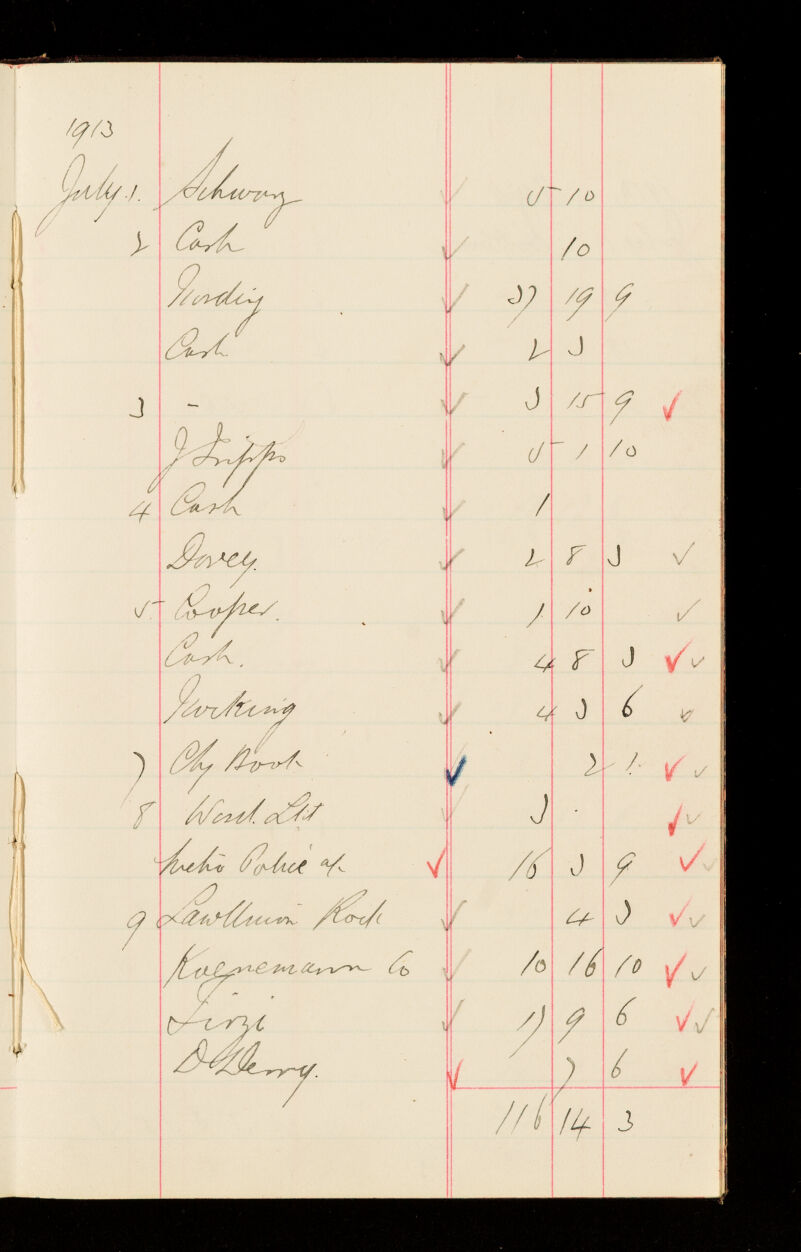 1913
July 1. Schwarz 5 10
2 Cash 10
Nording 37 19 9
Cash 2 3
3 - 3 15 9
J Tripps 5 1 10
4 Cash 1
Dovey. 2 8 3
5 Cooper. 1. 10
Cash. 4 8 3
Nocking 4 3 6
7 Chq Book 2 1.
8 3 .
Police a/c 16 3 9
9 Rock 4 3
Koenemann Co 10 16 10
Tirzi 17 9 6
D Derry. 7 6
116 14 3